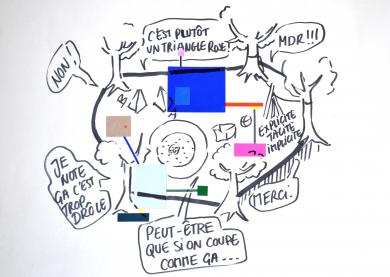 C'EST PLUTÔT
UN TRIANGLE ROSE!
MDR!!!
NON!
EXPLICITE
TACITE
IMPLICITE
JE
NOTE
ÇA C'EST
TROP
DRÔLE
MERCI.
PEUT-ÊTRE
QUE SI ON COUPE
COMME ÇA...